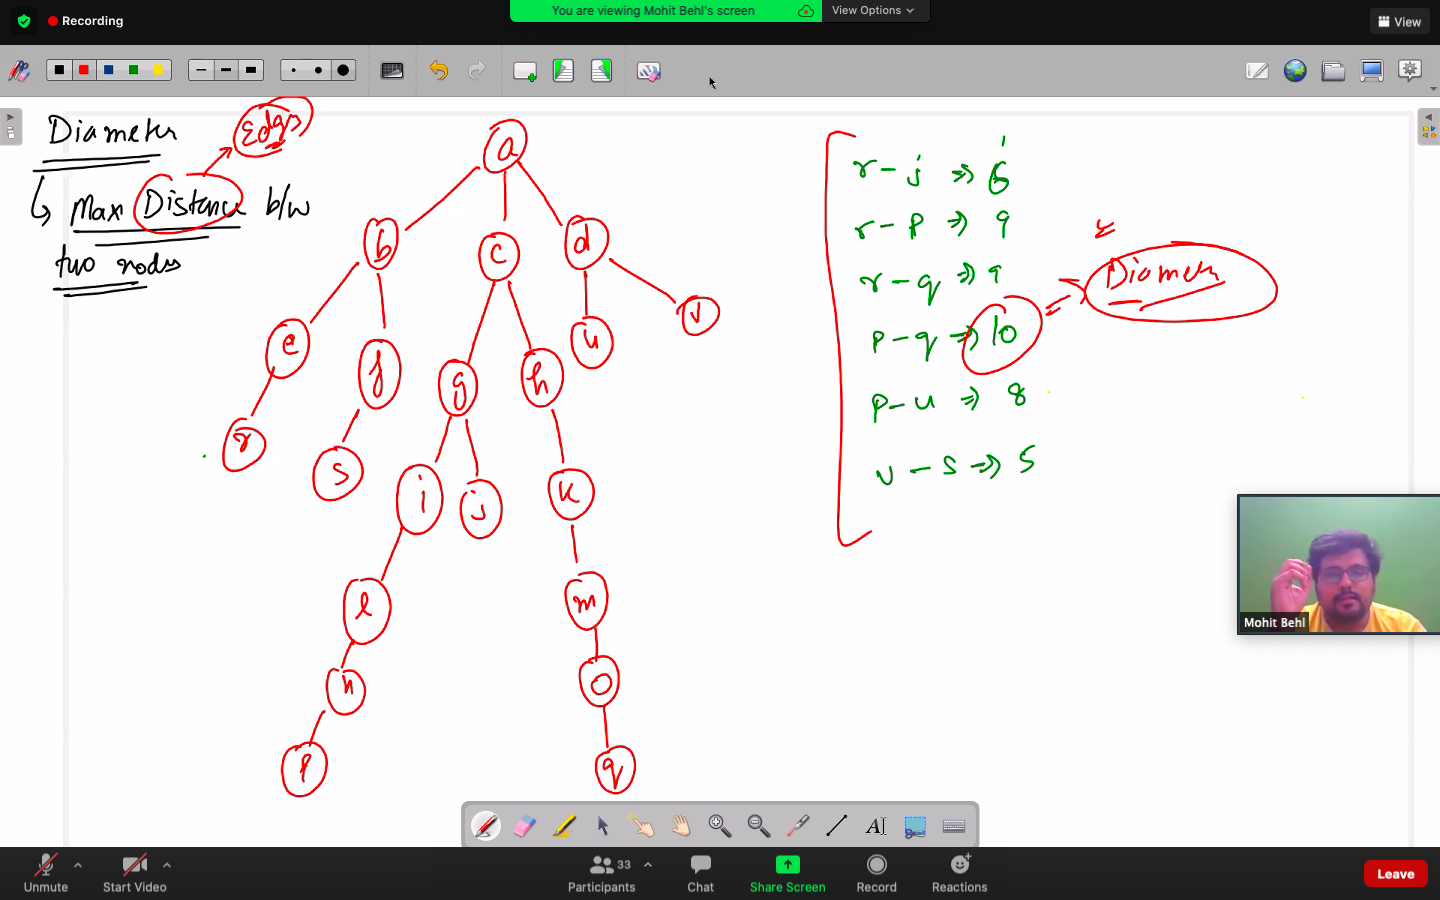 Recording
You are viewing Mohit Behl's screen
View Options
View
Diameter
Edges
Max Distance b/w
two nodes
a
b
c
d
e
f
g
h
u
v
r
s
i
j
k
l
m
n
o
p
q
r - j ⇒ 6
r - p ⇒ 9
r - q ⇒ 9
p - q ⇒ 10
Diameter
p - u ⇒ 8
v - s ⇒ 5
Mohit Behl
Unmute
Start Video
33
Participants
Chat
Share Screen
Record
Reactions
Leave